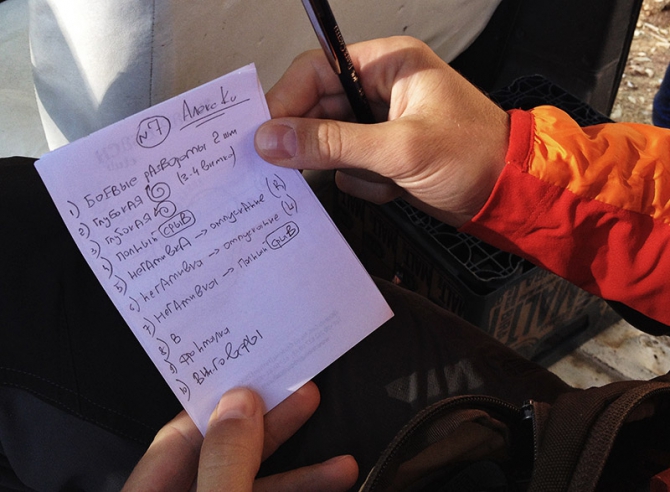 №7 Алекси
1) БОЕВЫЕ РАЗВОРОТЫ 2 шт
2) ГЛУБОКАЯ (3-4 витка)
3) ГЛУБОКАЯ
4) ПОЛНЫЙ СРЫВ
5) НЕГАТИВКА → отпускание (R)
6) НЕГАТИВКА → отпускание (L)
7) НЕГАТИВКА → полный СРЫВ
8) В
9)
10) ВИНГОВЕРЫ